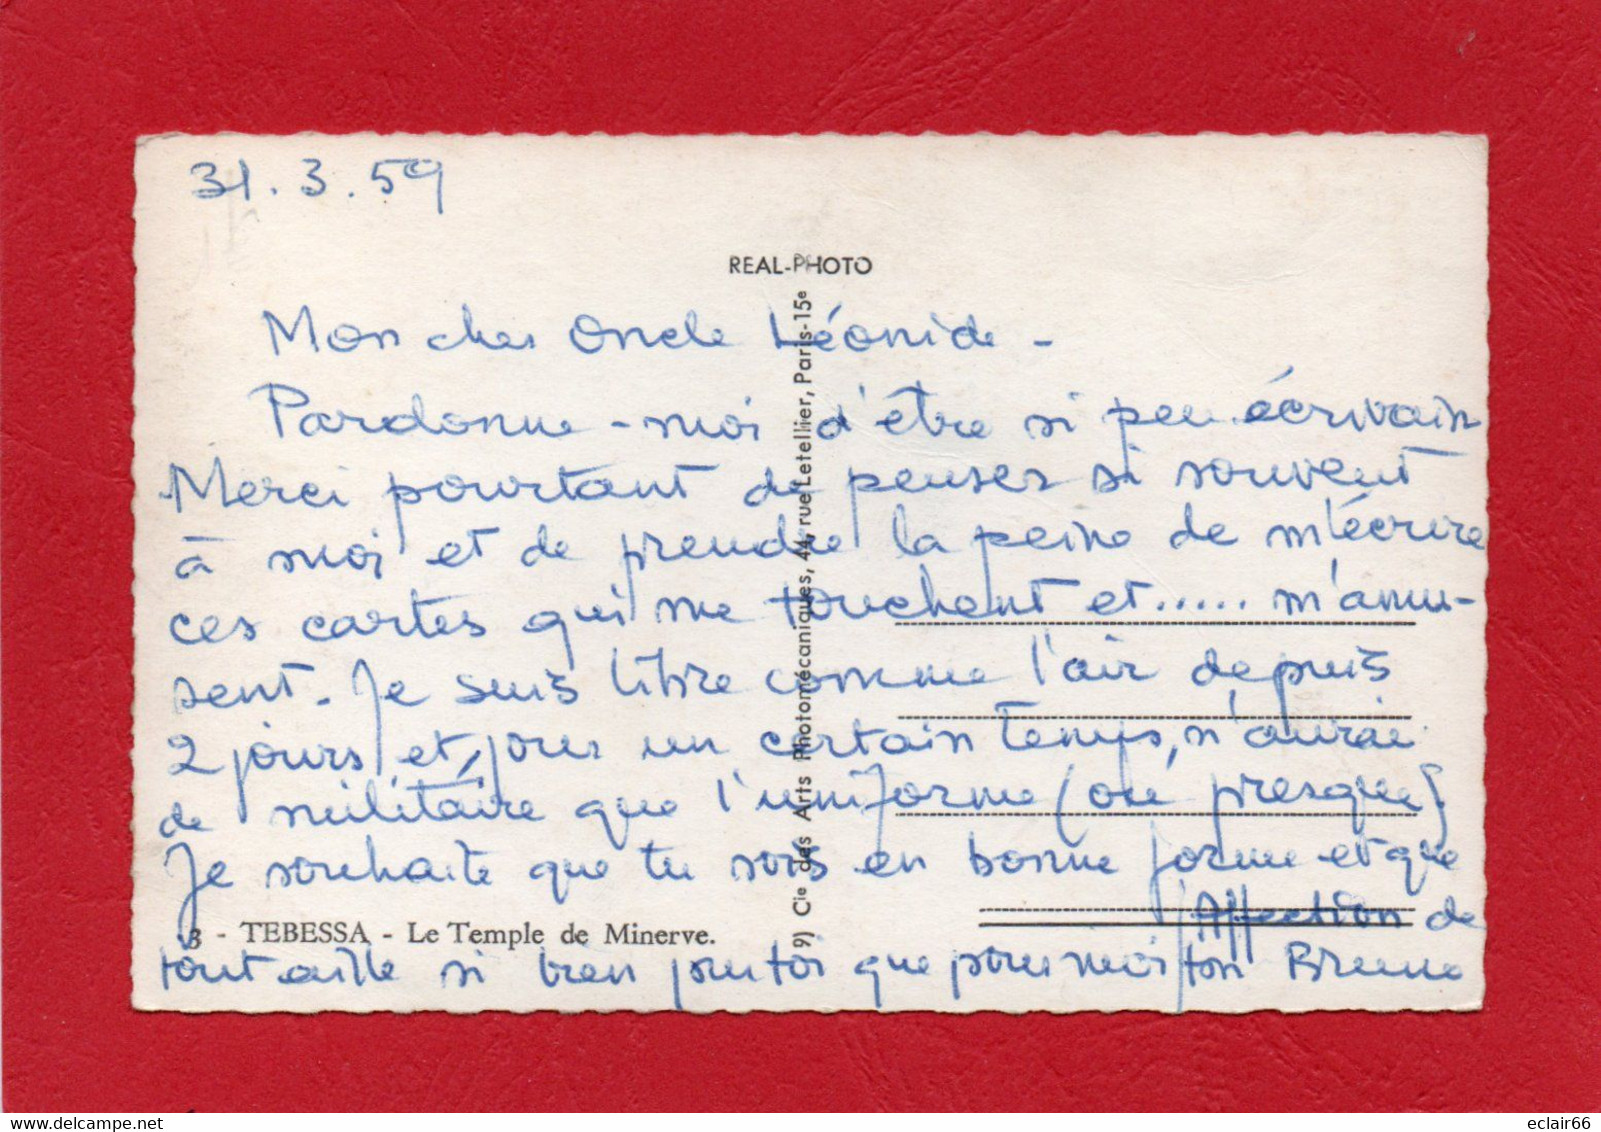 31.3.59
REAL-PHOTO
Mon cher Oncle Léonide -
Pardonne-moi d'être si peu écrivain
Merci pourtant de penser si souvent
à moi et de prendre la peine de m'écrire
ces cartes qui me touchent et..... m'amu-
sent. Je suis libre comme l'air depuis
2 jours et, pour un certain temps, n'aurai
de militaire que l'uniforme (ou presque).
Je souhaite que tu sois en bonne forme et que
tout aille si bien pour toi que pour moi
Affection de
ton Bruno
3 - TEBESSA - Le Temple de Minerve.
9) Cie des Arts Photomécaniques, 44, rue Letellier, Paris-15e
delcampe.net
eclair66